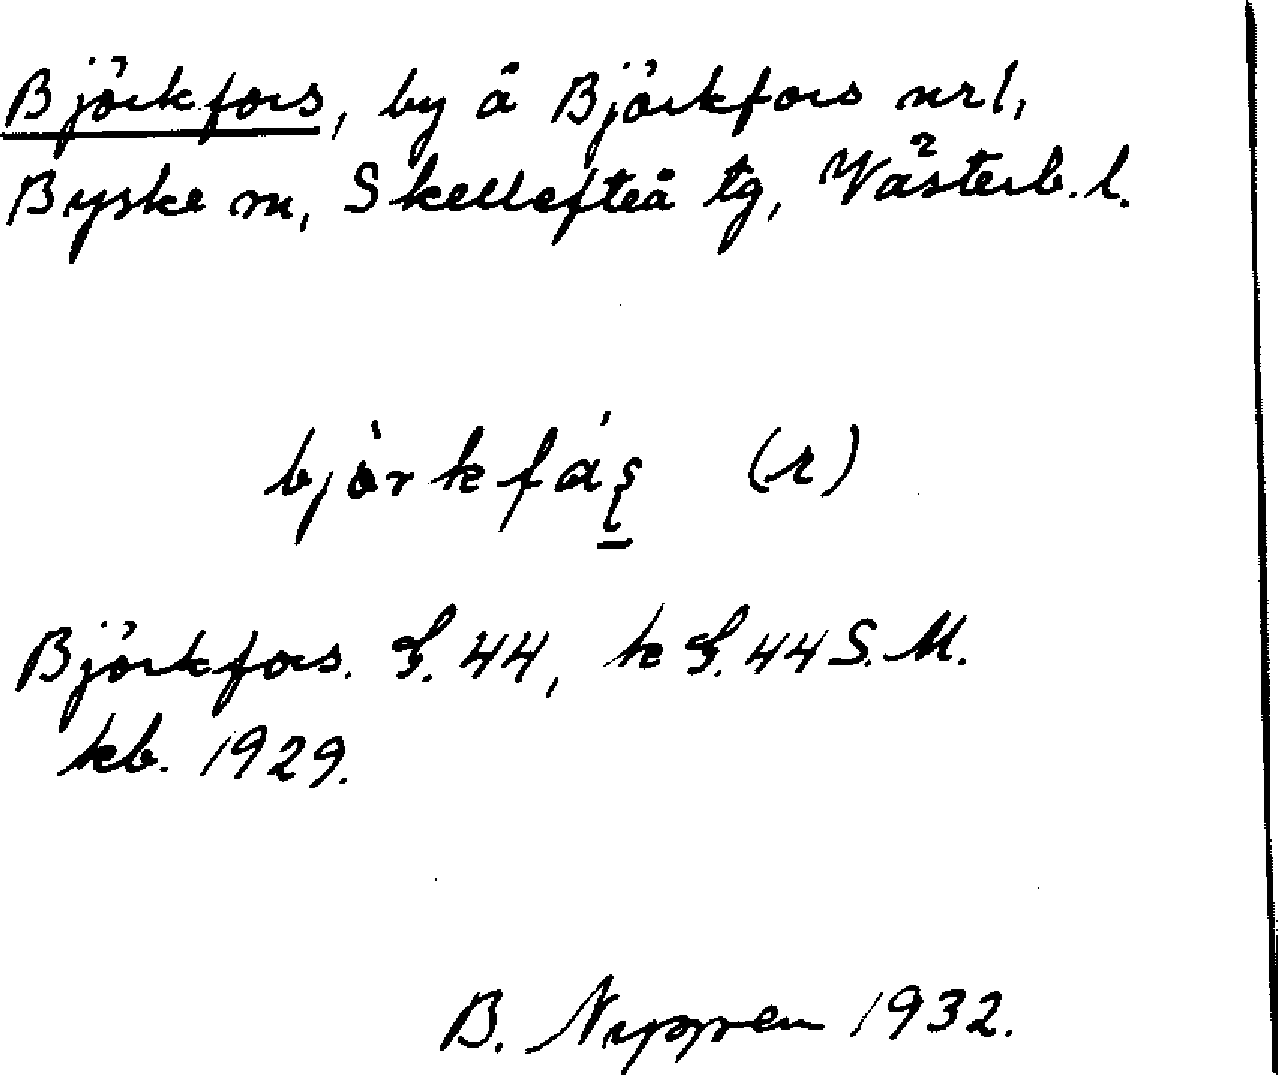 Björkfors, by å Björkfors nr1,
Byske sn, Skellefteå tg, Västerb. l.
bjòrkfás̱ (r)
Björkfors. S. 44, k S. 44 S. M.
kb. 1929.
B. Nygren 1932.